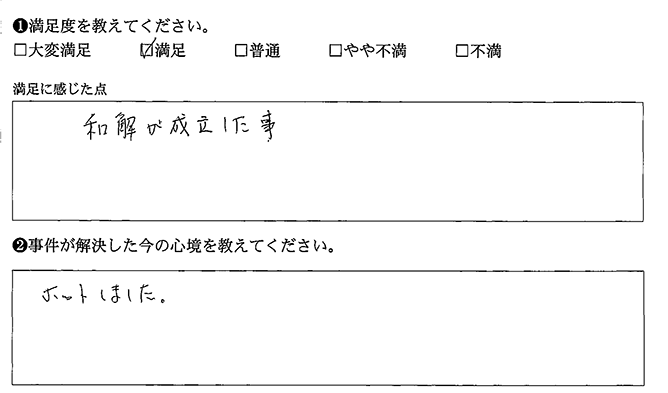 ❶満足度を教えてください。
□大変満足 ☑満足 □普通 □やや不満 □不満
満足に感じた点
和解が成立した事
❷事件が解決した今の心境を教えてください。
ホットしました。